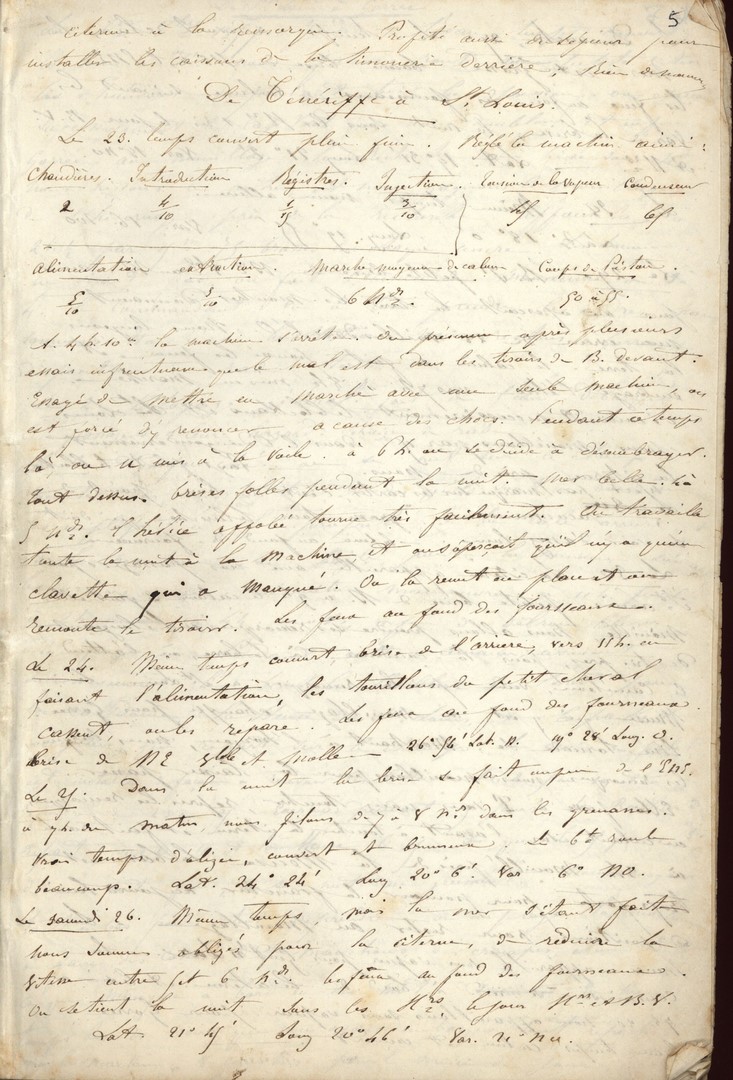 5
citerne à la remorque. Profité aussi du séjour pour
installer les caissons de la timonerie derrière; Rien de nouveau
De Ténériffe à St Louis.
Le 23. temps couvert plein foin. Réglé la machine ainsi:
Chaudières. Introduction Régistres. Injection. tension de la vapeur Condenseur
2 4/10 1/15 3/10 45 65
alimentation extraction. Marche moyenne de calme Coups de Piston.
5/10 5/10 6 Nds. 50 à 55.
A 4h.10m la machine s'arrête. On présume après plusieurs
essais infructueux que le mal est dans les tiroirs de B. devant.
Essayé de mettre en marche avec une seule machine, on
est forcé d'y renoncer à cause des chocs. Pendant ce temps
là, on a mis à la voile. à 6h. on se décide à désembrayer.
tout dessus. brises folles pendant la nuit. mer belle. 4 à
5 nds. l'hélice affolée tourne très facilement. On travaille
toute la nuit à la machine, et on s'aperçoit qu'il n'y a qu'une
clavette qui a manqué. On la remet en place et on
remonte le tiroir. Les feux au fond des fourneaux.
Le 24. Même temps couvert brise de l'arrière, vers 11h. en
faisant l'alimentation, les tourillons du petit cheval
cassent, on les répare. Les feux au fond des fourneaux.
brise de NE vble et molle 26° 56' Lat. N. 19° 28' Long. O.
Le 25. Dans la nuit la brise se fait un peu de l'ENE.
à 7h. du matin nous filons de 7 à 8 nds dans les grenasses.
Vrai temps d'alizés, couvert et brumeux. Le bt roule
beaucoup. Lat. 24° 24' Long 20° 6' Var 6° NO.
Le samedi 26. Même temps, mais la mer s'étant faite
nous sommes obligés pour la citerne, de réduire la
vitesse entre 5 et 6 nds. les feux au fond des fourneaux.
On se tient la nuit sous les Hrs, le jour
Lat 21° 45' Long 20° 46' Var.